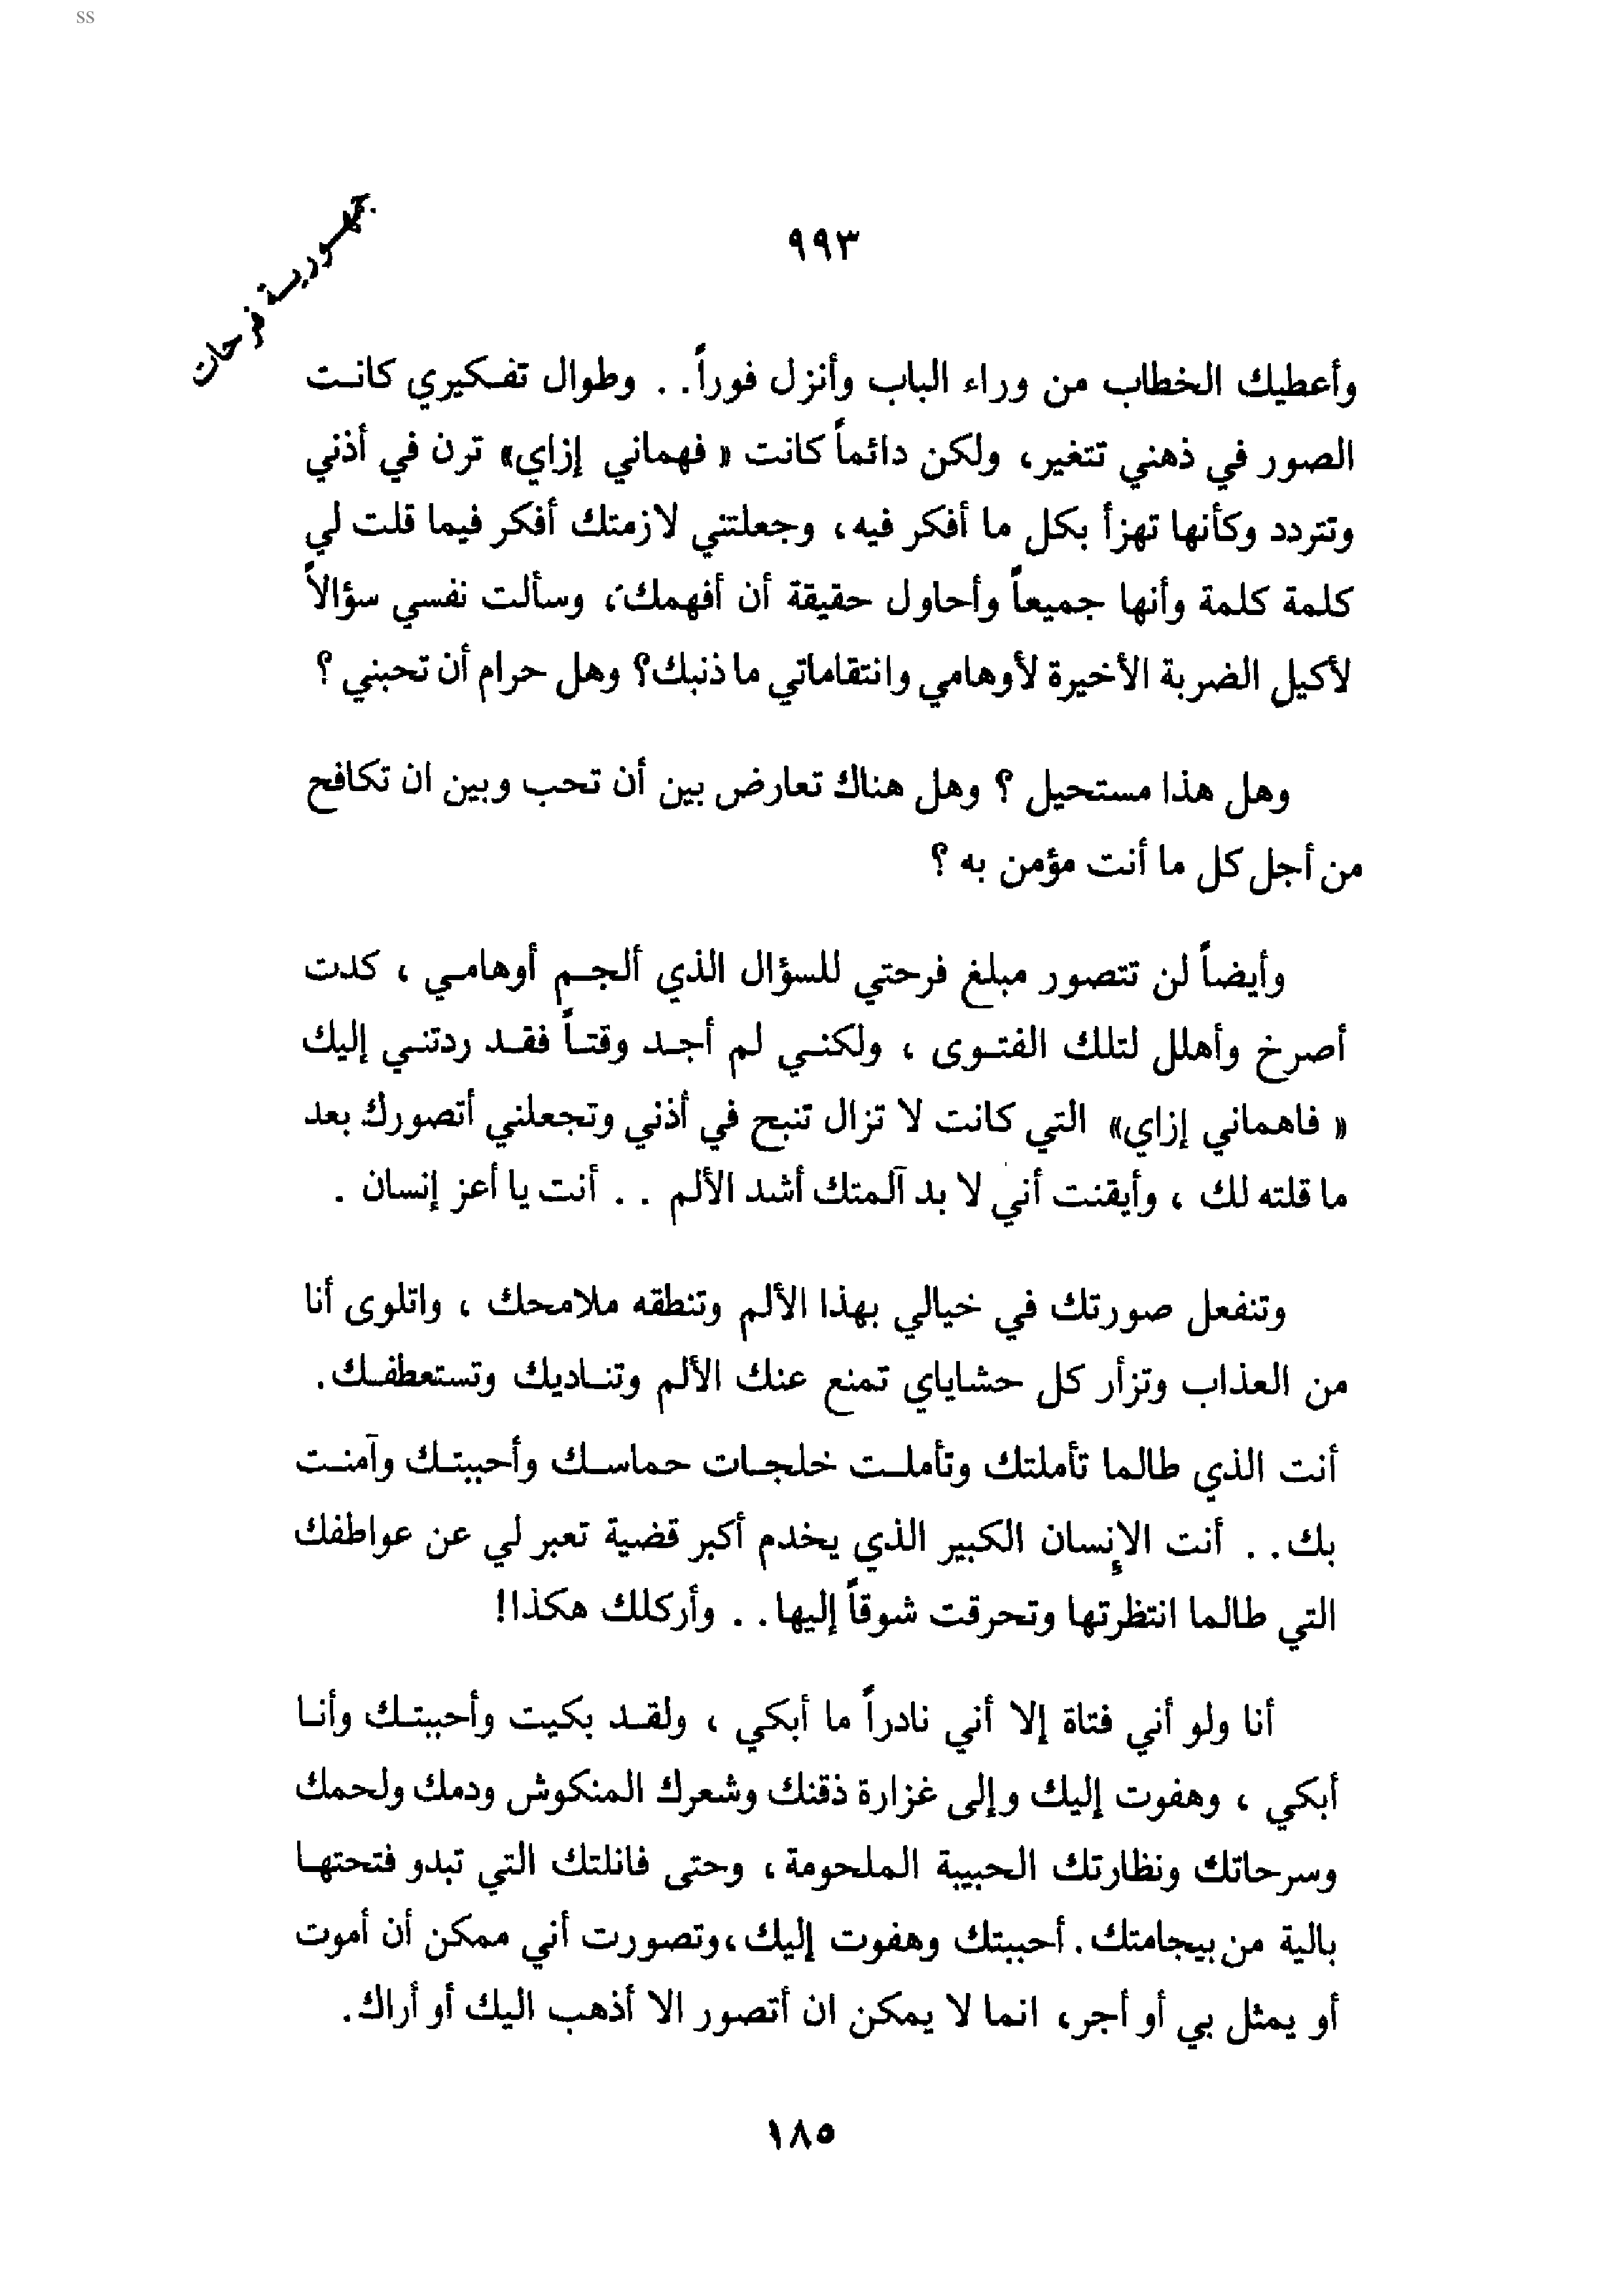 ss
٩٩٣
جمهورية فرحات
وأعطيك الخطاب من وراء الباب وأنزل فوراً. . وطوال تفكيري كانت
الصور في ذهني تتغير، ولكن دائماً كانت « فهماني إزاي» ترن في أذني
وتتردد وكأنها تهزأ بكل ما أفكر فيه، وجعلتني لازمتك أفكر فيما قلت لي
كلمة كلمة وأنها جميعاً وأحاول حقيقة أن أفهمك، وسألت نفسي سؤالاً
لأكيل الضربة الأخيرة لأوهامي وانتقاماتي ما ذنبك؟ وهل حرام أن تحبني ؟
وهل هذا مستحيل ؟ وهل هناك تعارض بين أن تحب وبين ان تكافح
من أجل كل ما أنت مؤمن به ؟
وأيضاً لن تتصور مبلغ فرحتي للسؤال الذي ألجم أوهامي ، كدت
أصرخ وأهلل لتلك الفتوى ، ولكني لم أجد وقتاً فقد ردتني إليك
« فاهماني إزاي» التي كانت لا تزال تنبح في أذني وتجعلني أتصورك بعد
ما قلته لك ، وأيقنت أني لا بد آلمتك أشد الألم . . أنت يا أعز إنسان .
وتنفعل صورتك في خيالي بهذا الألم وتنطقه ملامحك ، واتلوى أنا
من العذاب وتزأر كل حشاياي تمنع عنك الألم وتناديك وتستعطفك.
أنت الذي طالما تأملتك وتأملت خلجات حماسك وأحببتك وآمنت
بك. . أنت الإنسان الكبير الذي يخدم أكبر قضية تعبر لي عن عواطفك
التي طالما انتظرتها وتحرقت شوقاً إليها. . وأركلك هكذا!
أنا ولو أني فتاة إلا أني نادراً ما أبكي ، ولقد بكيت وأحببتك وأنا
أبكي ، وهفوت إليك وإلى غزارة ذقنك وشعرك المنكوش ودمك ولحمك
وسرحاتك ونظارتك الحبيبة الملحومة، وحتى فانلتك التي تبدو فتحتها
بالية من بيجامتك. أحببتك وهفوت إليك،وتصورت أني ممكن أن أموت
أو يمثل بي أو أجر، انما لا يمكن ان أتصور الا أذهب اليك أو أراك.
١٨٥